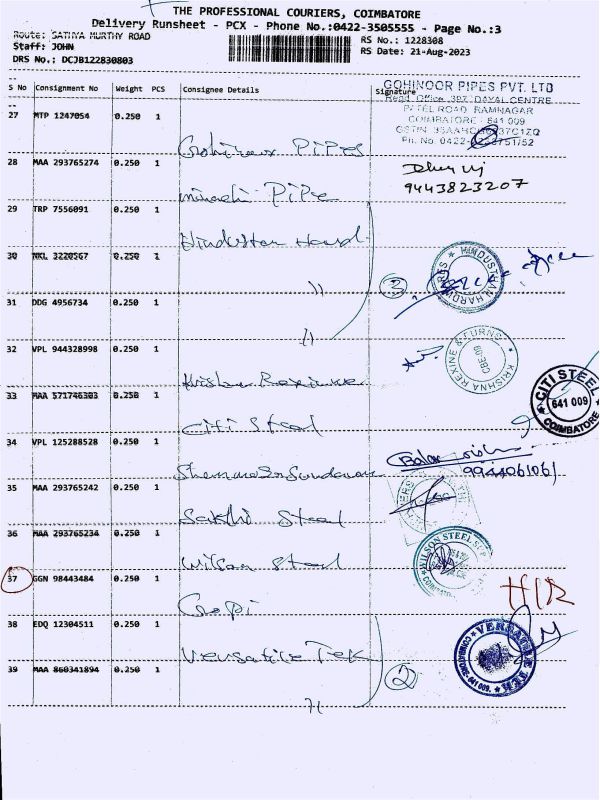 THE PROFESSIONAL COURIERS, COIMBATORE
Delivery Runsheet - PCX - Phone No.:0422-3505555 - Page No.:3
Route: SATHYA MURTHY ROAD
Staff: JOHN
DRS No.: DCJB122830803
RS No.: 1228308
RS Date: 21-Aug-2023
S No Consignment No Weight PCS Consignee Details Signature
GOHINOOR PIPES PVT. LTD
Head Office 397, DAYAL CENTRE
PATEL ROAD, RAMNAGAR
COIMBATORE - 641 009
27 MTP 1247054 0.250 1 Gohinoor Pipes
28 MAA 293765274 0.250 1 Pipe
9443823207
29 TRP 7556091 0.250 1 Hindustan Hard
30 NKL 3220567 0.250 1 "
3
HINDUSTHAN HARDWARES
31 DDG 4956734 0.250 1 "
32 VPL 944328998 0.250 1 Krishna Rexine
KRISHNA REXINE & TURNS
CBE-09
33 MAA 571746303 0.250 1 Citi Steel
CITI STEEL
641 009
COIMBATORE
34 VPL 125288528 0.250 1 Sundaram
35 MAA 293765242 0.250 1 Sakthi Steel
36 MAA 293765234 0.250 1 Wilson Steel
WILSON STEEL
37 GGN 98443484 0.250 1 Gopi
38 EDQ 12304511 0.250 1 Versatile Tek
2
VERSATILE TEK
COIMBATORE-641 009.
39 MAA 860341894 0.250 1 "